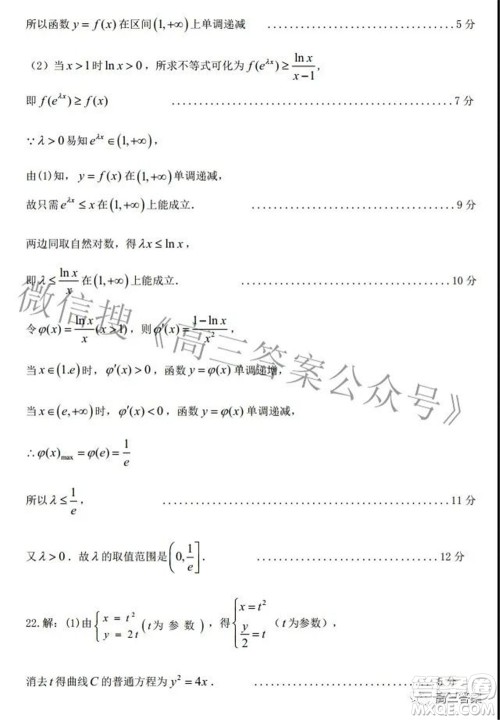 所以函数 y = f(x) 在区间 (1,+∞) 上单调递减 ....................5 分
(2) 当 x > 1 时 ln x > 0，所求不等式可化为 f(e^{λx}) ≥ \frac{ln x}{x-1}，
即 f(e^{λx}) ≥ f(x) ....................7 分
∵ λ > 0 易知 e^{λx} ∈ (1,+∞)，
由(1)知，y = f(x) 在 (1,+∞) 单调递减，
故只需 e^{λx} ≤ x 在 (1,+∞) 上能成立． ....................9 分
两边同取自然对数，得 λx ≤ ln x，
即 λ ≤ \frac{ln x}{x} 在 (1,+∞) 上能成立． ....................10 分
令 φ(x) = \frac{ln x}{x} (x > 1)，则 φ′(x) = \frac{1-ln x}{x^2}，
当 x ∈ (1.e) 时，φ′(x) > 0，函数 y = φ(x) 单调递增，
当 x ∈ (e,+∞) 时，φ′(x) < 0，函数 y = φ(x) 单调递减，
∴ φ(x)_{max} = φ(e) = \frac{1}{e}
所以 λ ≤ \frac{1}{e}． ....................11 分
又 λ > 0．故 λ 的取值范围是 (0, \frac{1}{e}]． ....................12 分
22.解：(1)由 { x = t^2 y = 2t (t 为 参 数)，得 { x = t^2 \frac{y}{2} = t (t 为参数)，
消去 t 得曲线 C 的普通方程为 y^2 = 4x．
微信搜《高三答案公众号》
高三答案